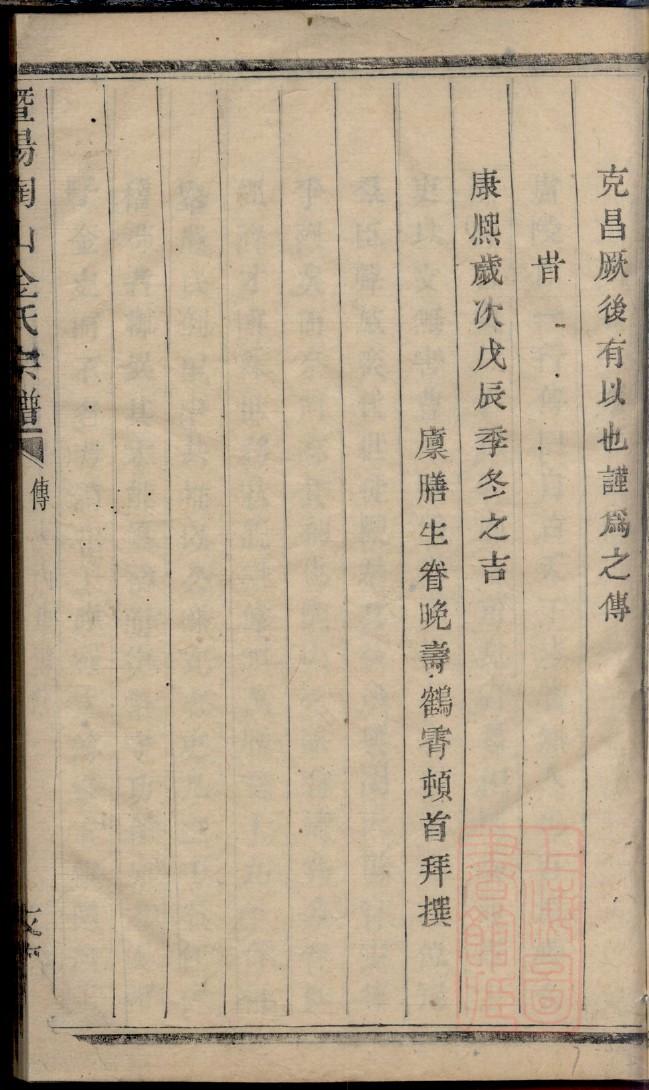 克昌厥後有以也謹爲之傳
旹
康熈歲次戊辰季冬之吉
廩膳生眷晚壽鶴霄頓首拜撰
暨陽闹山金氏宗譜
傳
上海圖書館藏